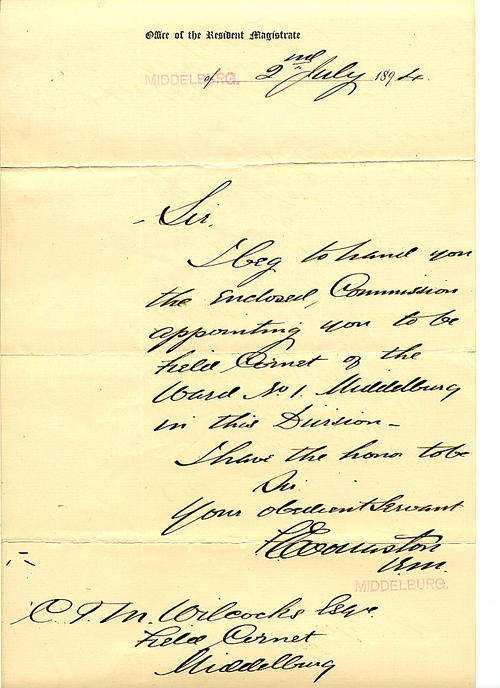 Office of the Resident Magistrate
MIDDELBURG. 2nd July 1894.
Sir,
I beg to hand you
the enclosed, Commission
appointing you to be
Field Cornet of the
Ward No 1. Middelburg
in this Division -
I have the honor to be
Sir
Your obedient Servant
R.M.
MIDDELBURG.
C. T. M. Wilcocks Esqr.
Field Cornet
Middelburg